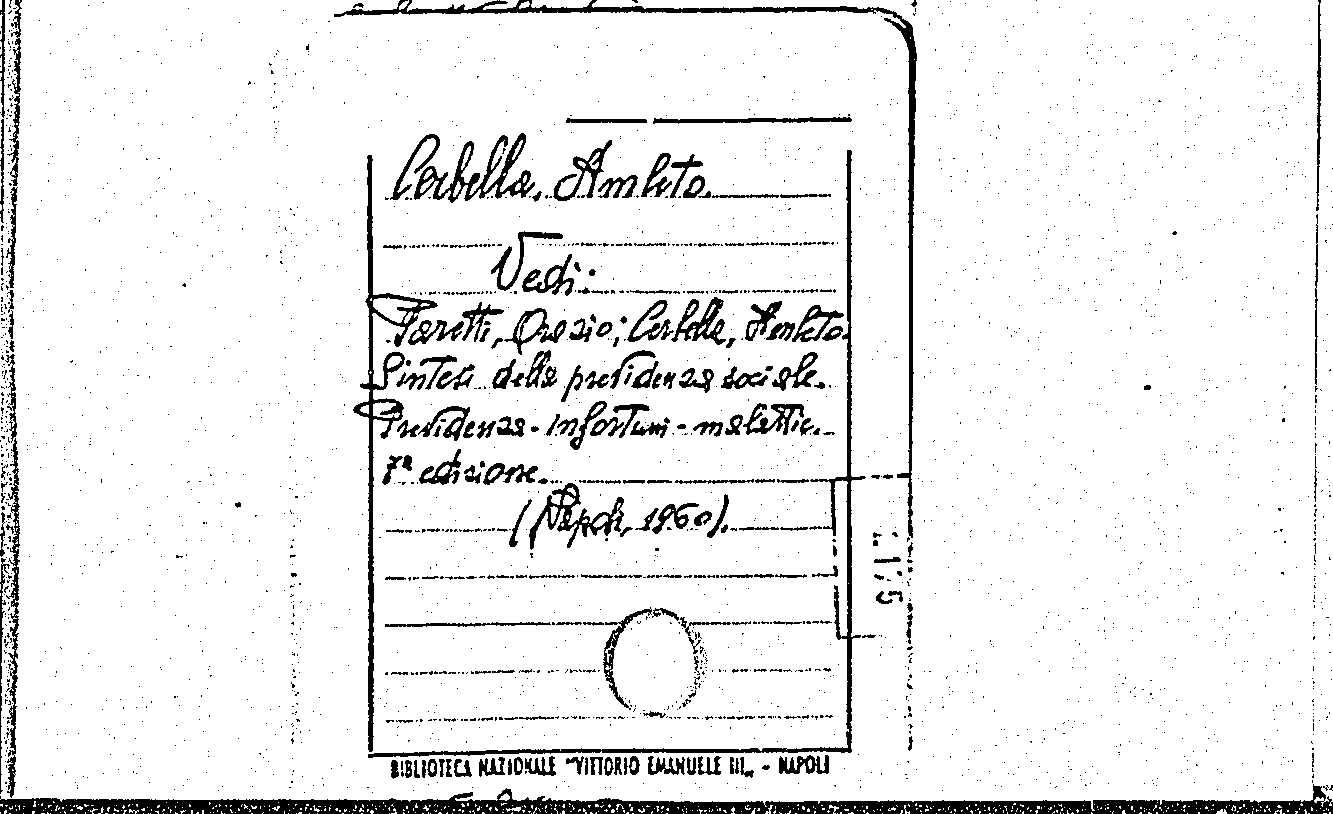 Cerbella, Amleto.
Vedi:
Fanetti, Orazio; Cerbella, Amleto.
Sintesi della previdenza sociale.
Previdenza - infortuni - malattie.
7ª edizione.
(Napoli, 1960).
BIBLIOTECA NAZIONALE "VITTORIO EMANUELE III„ - NAPOLI